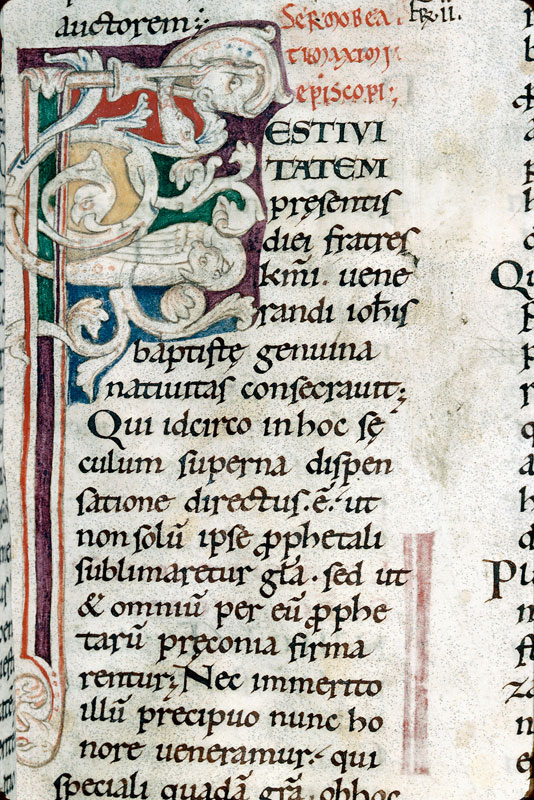 auctorem;
Sermo bea
ti maximi
episcopi;
FESTIVI
TATEM
pręsentis
diei fratres
km̄i. uene
randi ioħis
baptistę genuina
natiuitas consecrauit;
Qui idcirco in hoc sę
culum superna dispen
satione directus. ē. ut
non solū ipse ꝓphetali
sublimaretur gr̄a. sed ut
& omniū per eū ꝓphe
tarū pręconia firma
rentur; Nec immerito
illū pręcipuo nunc ho
nore ueneramur. qui
speciali quadā gr̄a. ob hoc